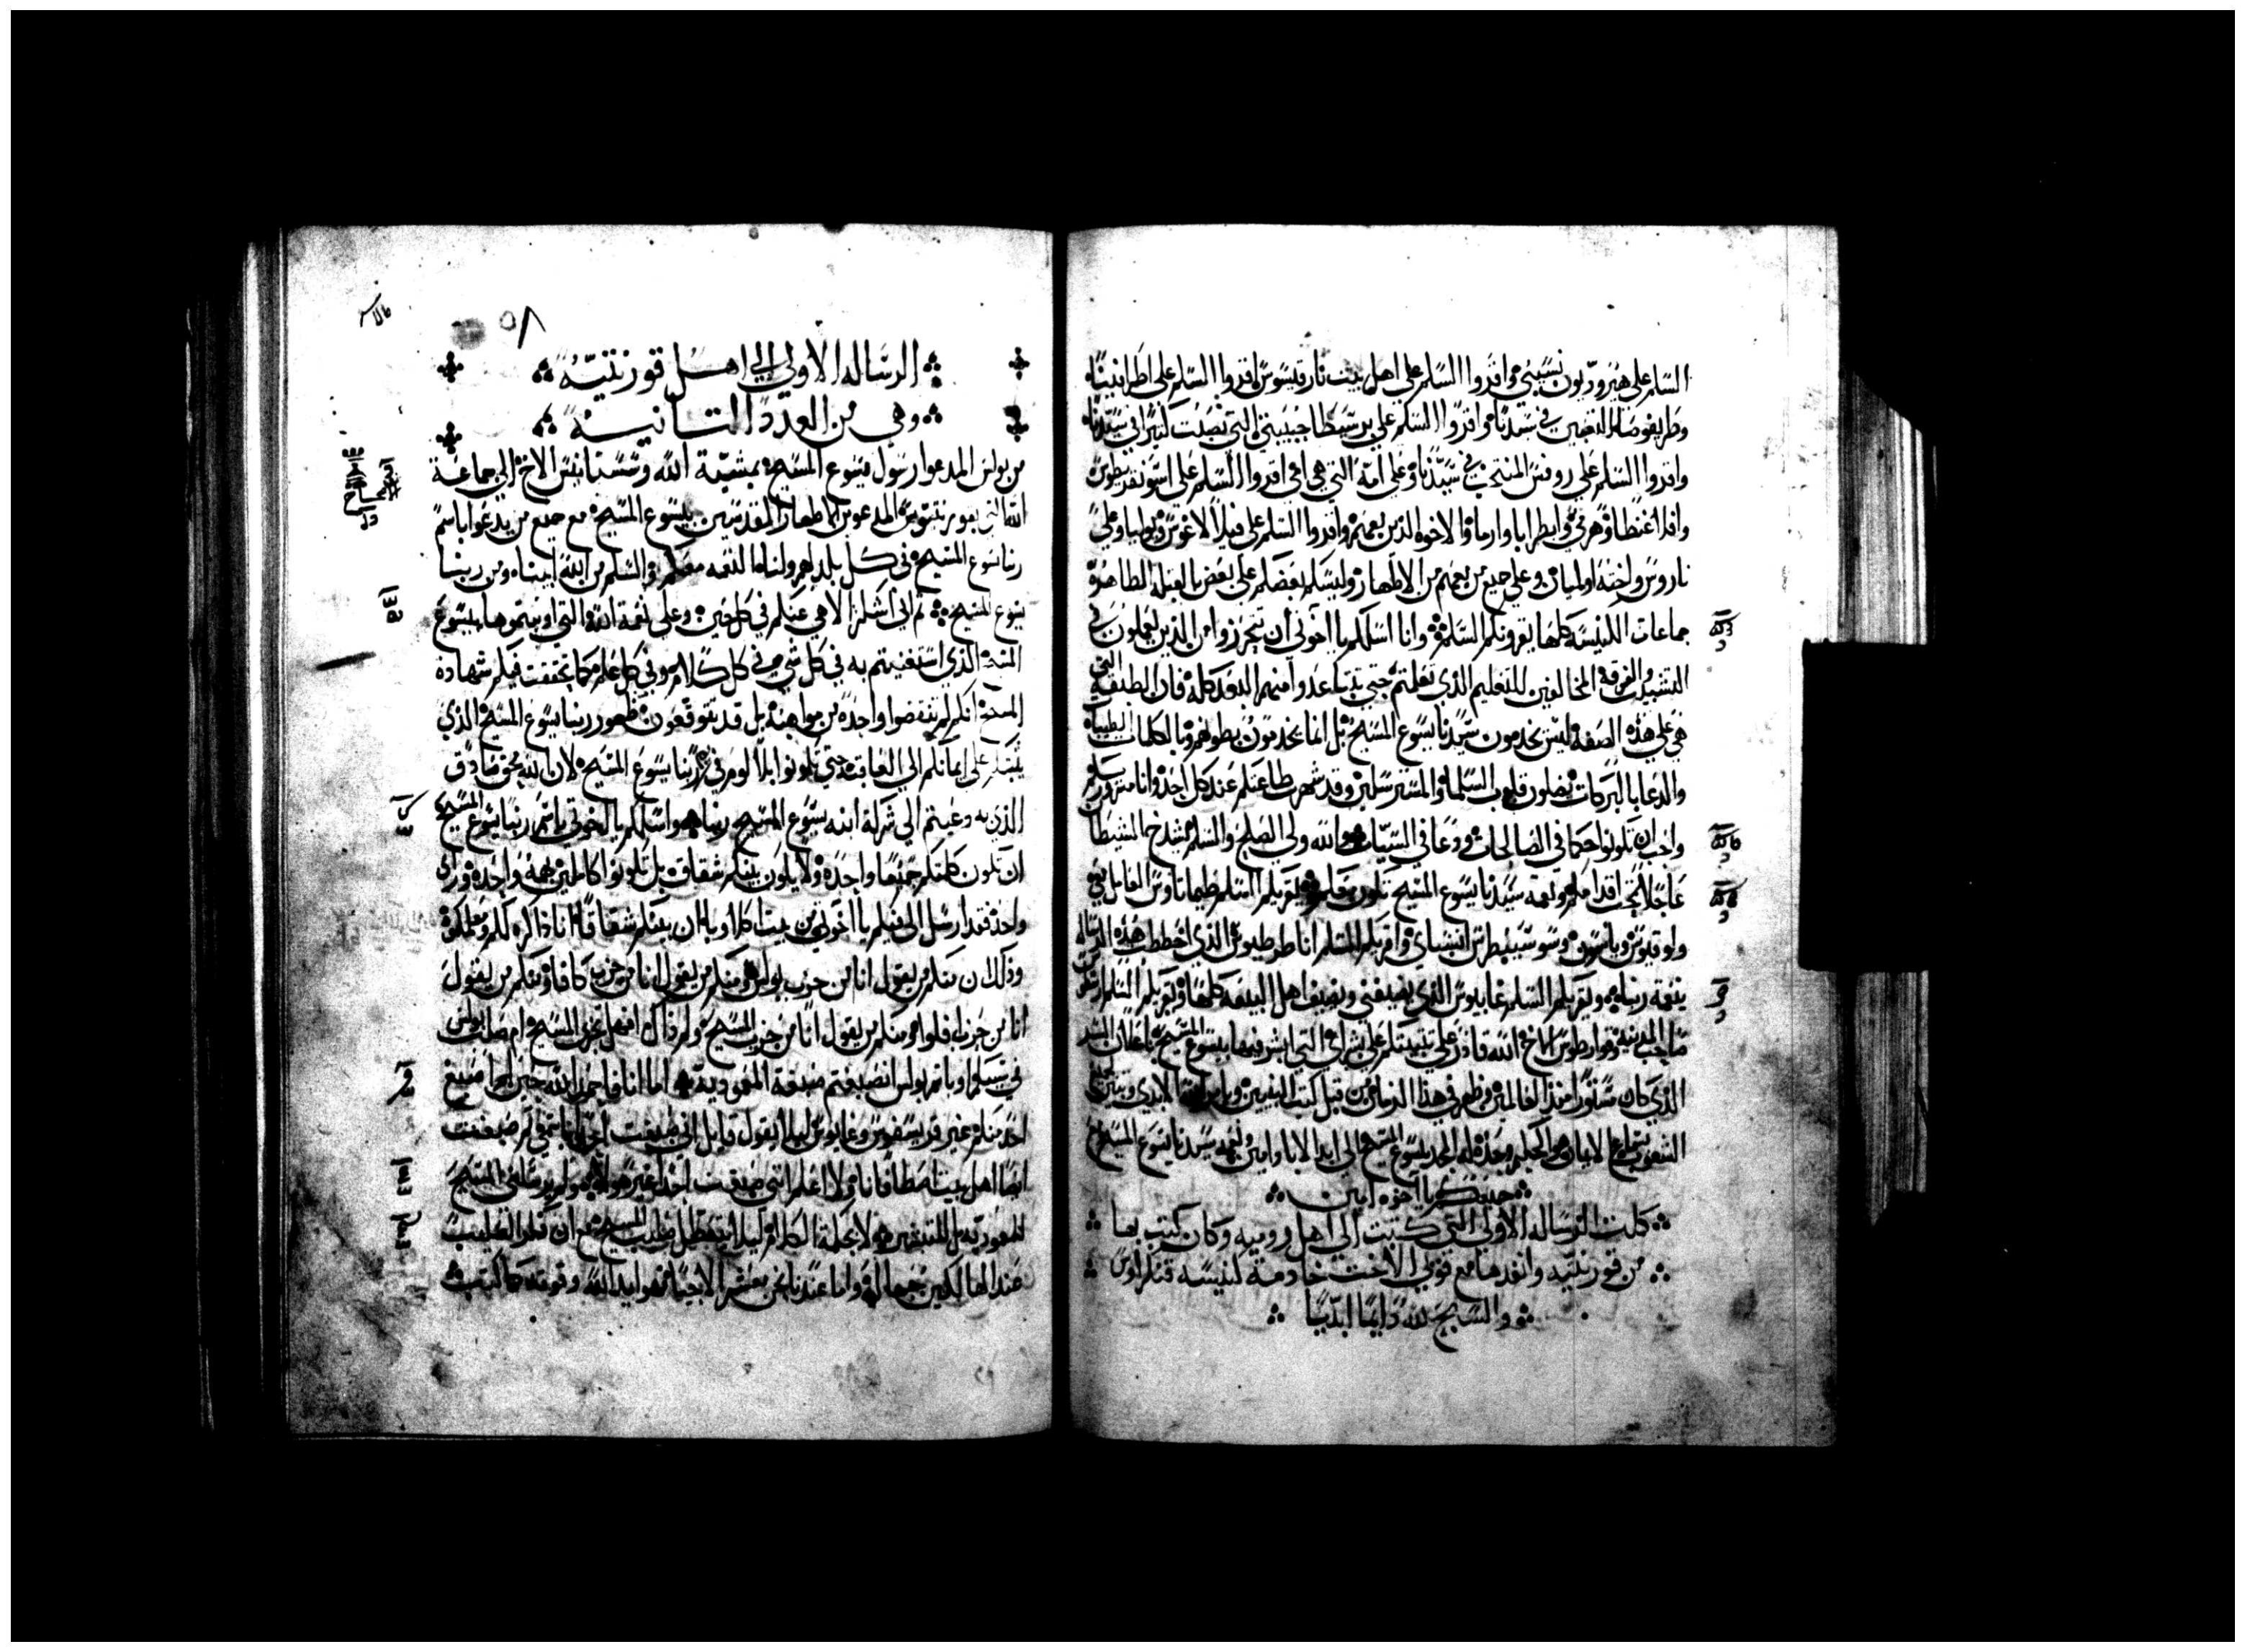 السلم على هيروديون نسيبي واقروا السلم على اهل بيت نارقيسوس اقروا السلم على اطرافينا
وطريفوسا التعبين في سيدنا واقروا السلم على برسيطا حبيبتي التي تعبت كثيرا في سيدنا
واقروا السلم على روفس المنتخب في سيدنا وعلى امه التي هي امي اقروا السلم على اسونقريطوس
وافلاغنطا وهرمي وابطرابا وارما والاخوه الذين معهم واقروا السلم على فيلالاغوس ويوليا وعلى
ناروس واخته اولمبا وعلى جميع من معهم من الاطهار وليسلم بعضكم على بعض بالقبله الطاهره
جماعات الكنيسه كلها يقرونكم السلم وانا اسلكم يا اخوتي ان تتحرزوا من الذين يعملون في
التشتيت والفرقه المخالفين للتعليم الذي تعلمتم حتى تتباعدوا منهم البعد كله فان الطبقه التي
هي على هذه الصفه ليس يخدمون سيدنا يسوع المسيح بل انما يخدمون بطونهم وبالكلمات الطيبات
والدعا بالبركات يضلون قلوب السلما والمسترسلين وقد شهرت طاعتكم عند كل احد وانا مسرور بكم
واحب ان تكونوا حكما في الصالحات وودعا في السيات والله ولي الصلح والسلم يشدخ الشيطان
عاجلا تحت اقدامكم ونعمه سيدنا يسوع المسيح تكون معكم يقريكم السلم طيماتاوس العامل معي
ولوقيوس وياسون وسوسيبطرس انسباي واقريكم السلم انا طرطيوس الذي اخططت هذه الرساله
بنعمة ربنا ويقريكم السلم غايوس الذي يضيفني ويضيف اهل البيعه كلها ويقريكم السلم ارسطوس
صاحب المدينه وقوارطوس الاخ الله قادر على تثبيتكم على بشراي التي ابشر فيها بيسوع المسيح باعلان السر
الذي كان مستورا منذ العالمين وظهر في هذا الزمان من قبل كتب النبيين وبامر الله الابدي وتبين لجميع
الشعوب بسماع الايمان هو الحكيم وحده له المجد بيسوع المسيح الى ابد الاباد امين ونعمه سيدنا يسوع المسيح مع
جميعكم يا اخوه امين
كملت الرساله الاولى التي كتبت الى اهل روميه وكان كتب بها
من قورنتيه وانفدها مع فوبي الاخت خادمة كنيسه قنكراوس
والسبح لله دايما ابديا
٥٨
الرساله الاولى الى اهل قورنتيه
وهي من العدد التانيه
من بولس المدعوا رسول يسوع المسيح بمشية الله وسستانيس الاخ الى جماعة
الله التي بقورنتوس المدعوين الاطهار المقدسين بيسوع المسيح مع جميع من يدعوا باسم
ربنا يسوع المسيح في كل بلد لهم ولنا النعمه معكم والسلم من الله ابينا ومن ربنا
يسوع المسيح ثم اني اشكر الاهي عنكم في كل حين وعلى نعمة الله التي اوتيتموها بيسوع
المسيح الذي استغنيتم به في كل شي في كل كلام وفي كل علم كما تحققت فيكم شهادة
المسيح انكم لم تنقصوا واحده من مواهبه بل قد تتوقعون ظهور ربنا يسوع المسيح الذي
يثبتكم على ايمانكم الى العاقبه حتى تكونوا بلا لوم في يوم ربنا يسوع المسيح لان الله محق صادق
الذي به دعيتم الى شركة ابنه يسوع المسيح ربنا واسلكم يا اخوتي باسم ربنا يسوع المسيح
ان تكون كلمتكم جميعا واحده ولا يكون بينكم شقاق بل تكونوا كاملين بهمه واحده وراي
واحد فقد ارسل الي فيكم يا اخوتي من بيت كلاويا ان بينكم شقاقا انا ذاكره لكم ومعلمكموه
وذلك ان منكم من يقول انا من حزب بولس ومنكم من يقول انا من حزب كافا ومنكم من يقول
انا من حزب افلوا ومنكم من يقول انا من حزب المسيح ولم ذاك افهل تجزى المسيح ام صلب بولس
في سببكم او باسم بولس انصبغتم صبغة المعمودية اما انا فاحمد الله حين لم اصبغ
احد منكم غير قريسفوس وغايوس ليلا يقول قايل اني صبغت احدا باسمي ثم صبغت
ايضا اهل بيت اصطافانا ولا اعلم انني صبغت احدا غير هولا ولم يرسلني المسيح
للمعمودية بل للتبشير لا بحكمة الكلام ليلا يتعطل صليب المسيح مع ان ذكر الصليب
عند الهالكين جهاله واما عندنا نحن معشر الاحيا فهو ايد الله وقوته كما كتبت